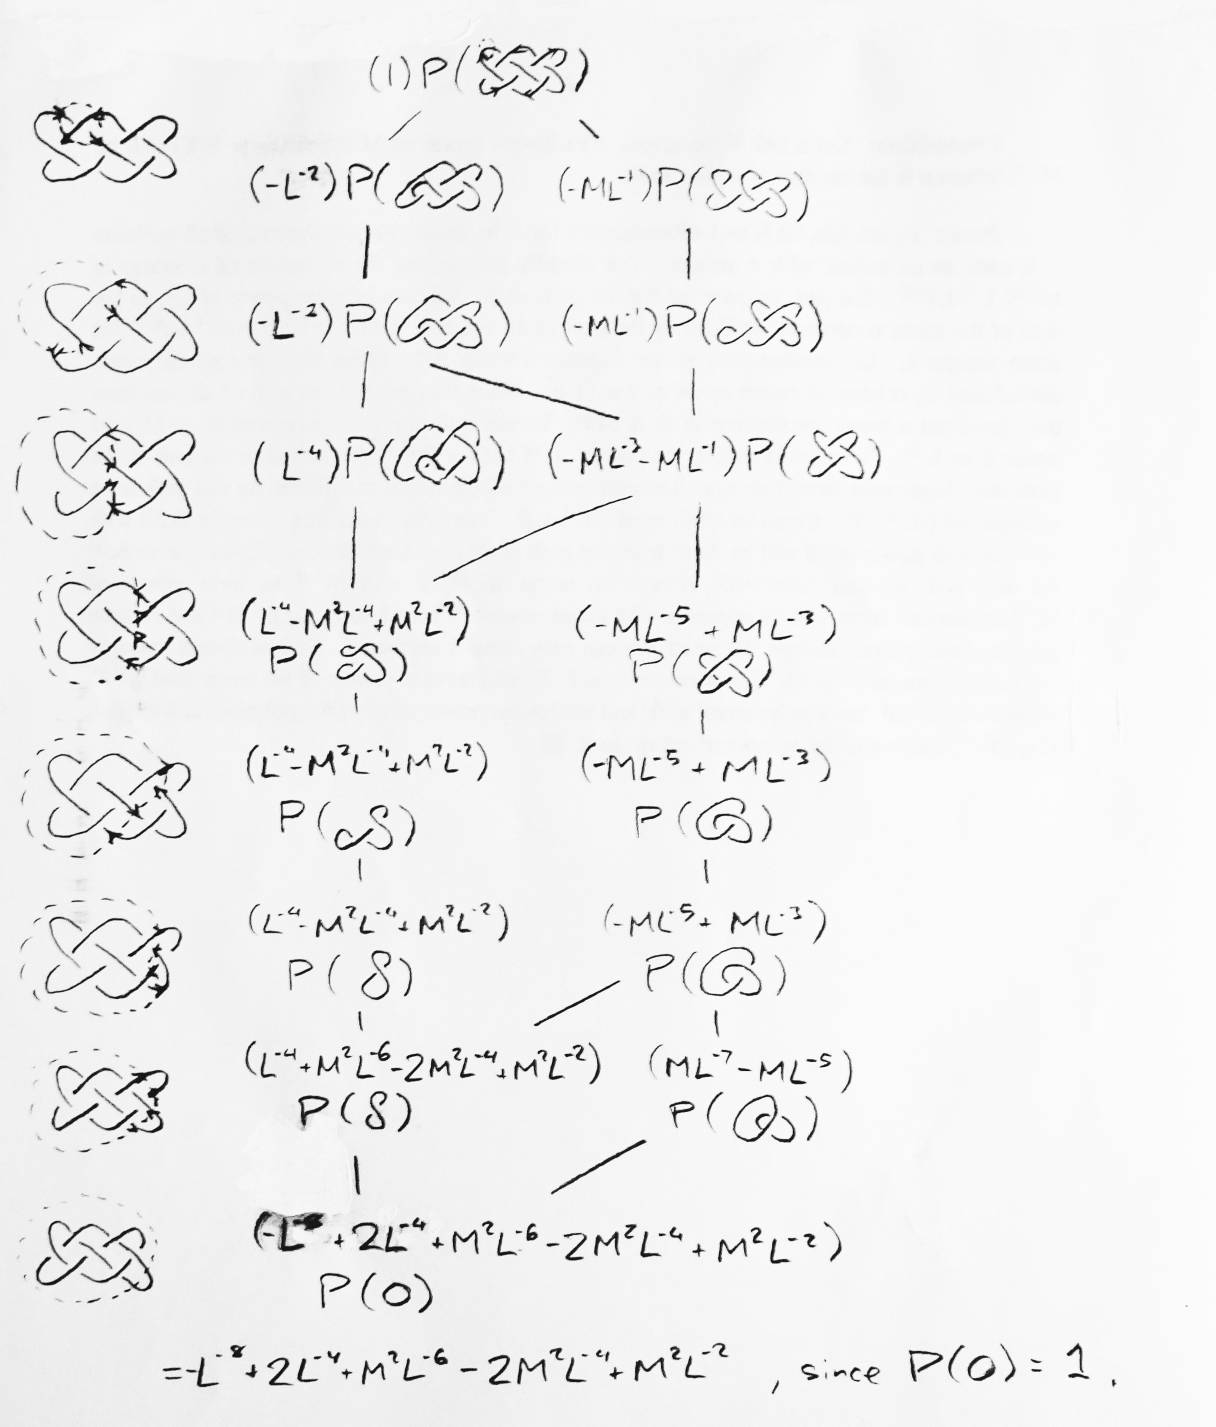 (1)P( )
(-L⁻²)P( ) (-ML⁻¹)P( )
(-L⁻²)P( ) (-ML⁻¹)P( )
(L⁻⁴)P( ) (-ML⁻³-ML⁻¹)P( )
(L⁻⁴-M²L⁻⁴+M²L⁻²) (-ML⁻⁵+ML⁻³)
P( ) P( )
(L⁻⁴-M²L⁻⁴+M²L⁻²) (-ML⁻⁵+ML⁻³)
P( ) P( )
(L⁻⁴-M²L⁻⁴+M²L⁻²) (-ML⁻⁵+ML⁻³)
P( ) P( )
(L⁻⁴+M²L⁻⁶-2M²L⁻⁴+M²L⁻²) (ML⁻⁷-ML⁻⁵)
P( ) P( )
(-L⁻⁸+2L⁻⁴+M²L⁻⁶-2M²L⁻⁴+M²L⁻²)
P(O)
=-L⁻⁸+2L⁻⁴+M²L⁻⁶-2M²L⁻⁴+M²L⁻² , since P(O)=1.